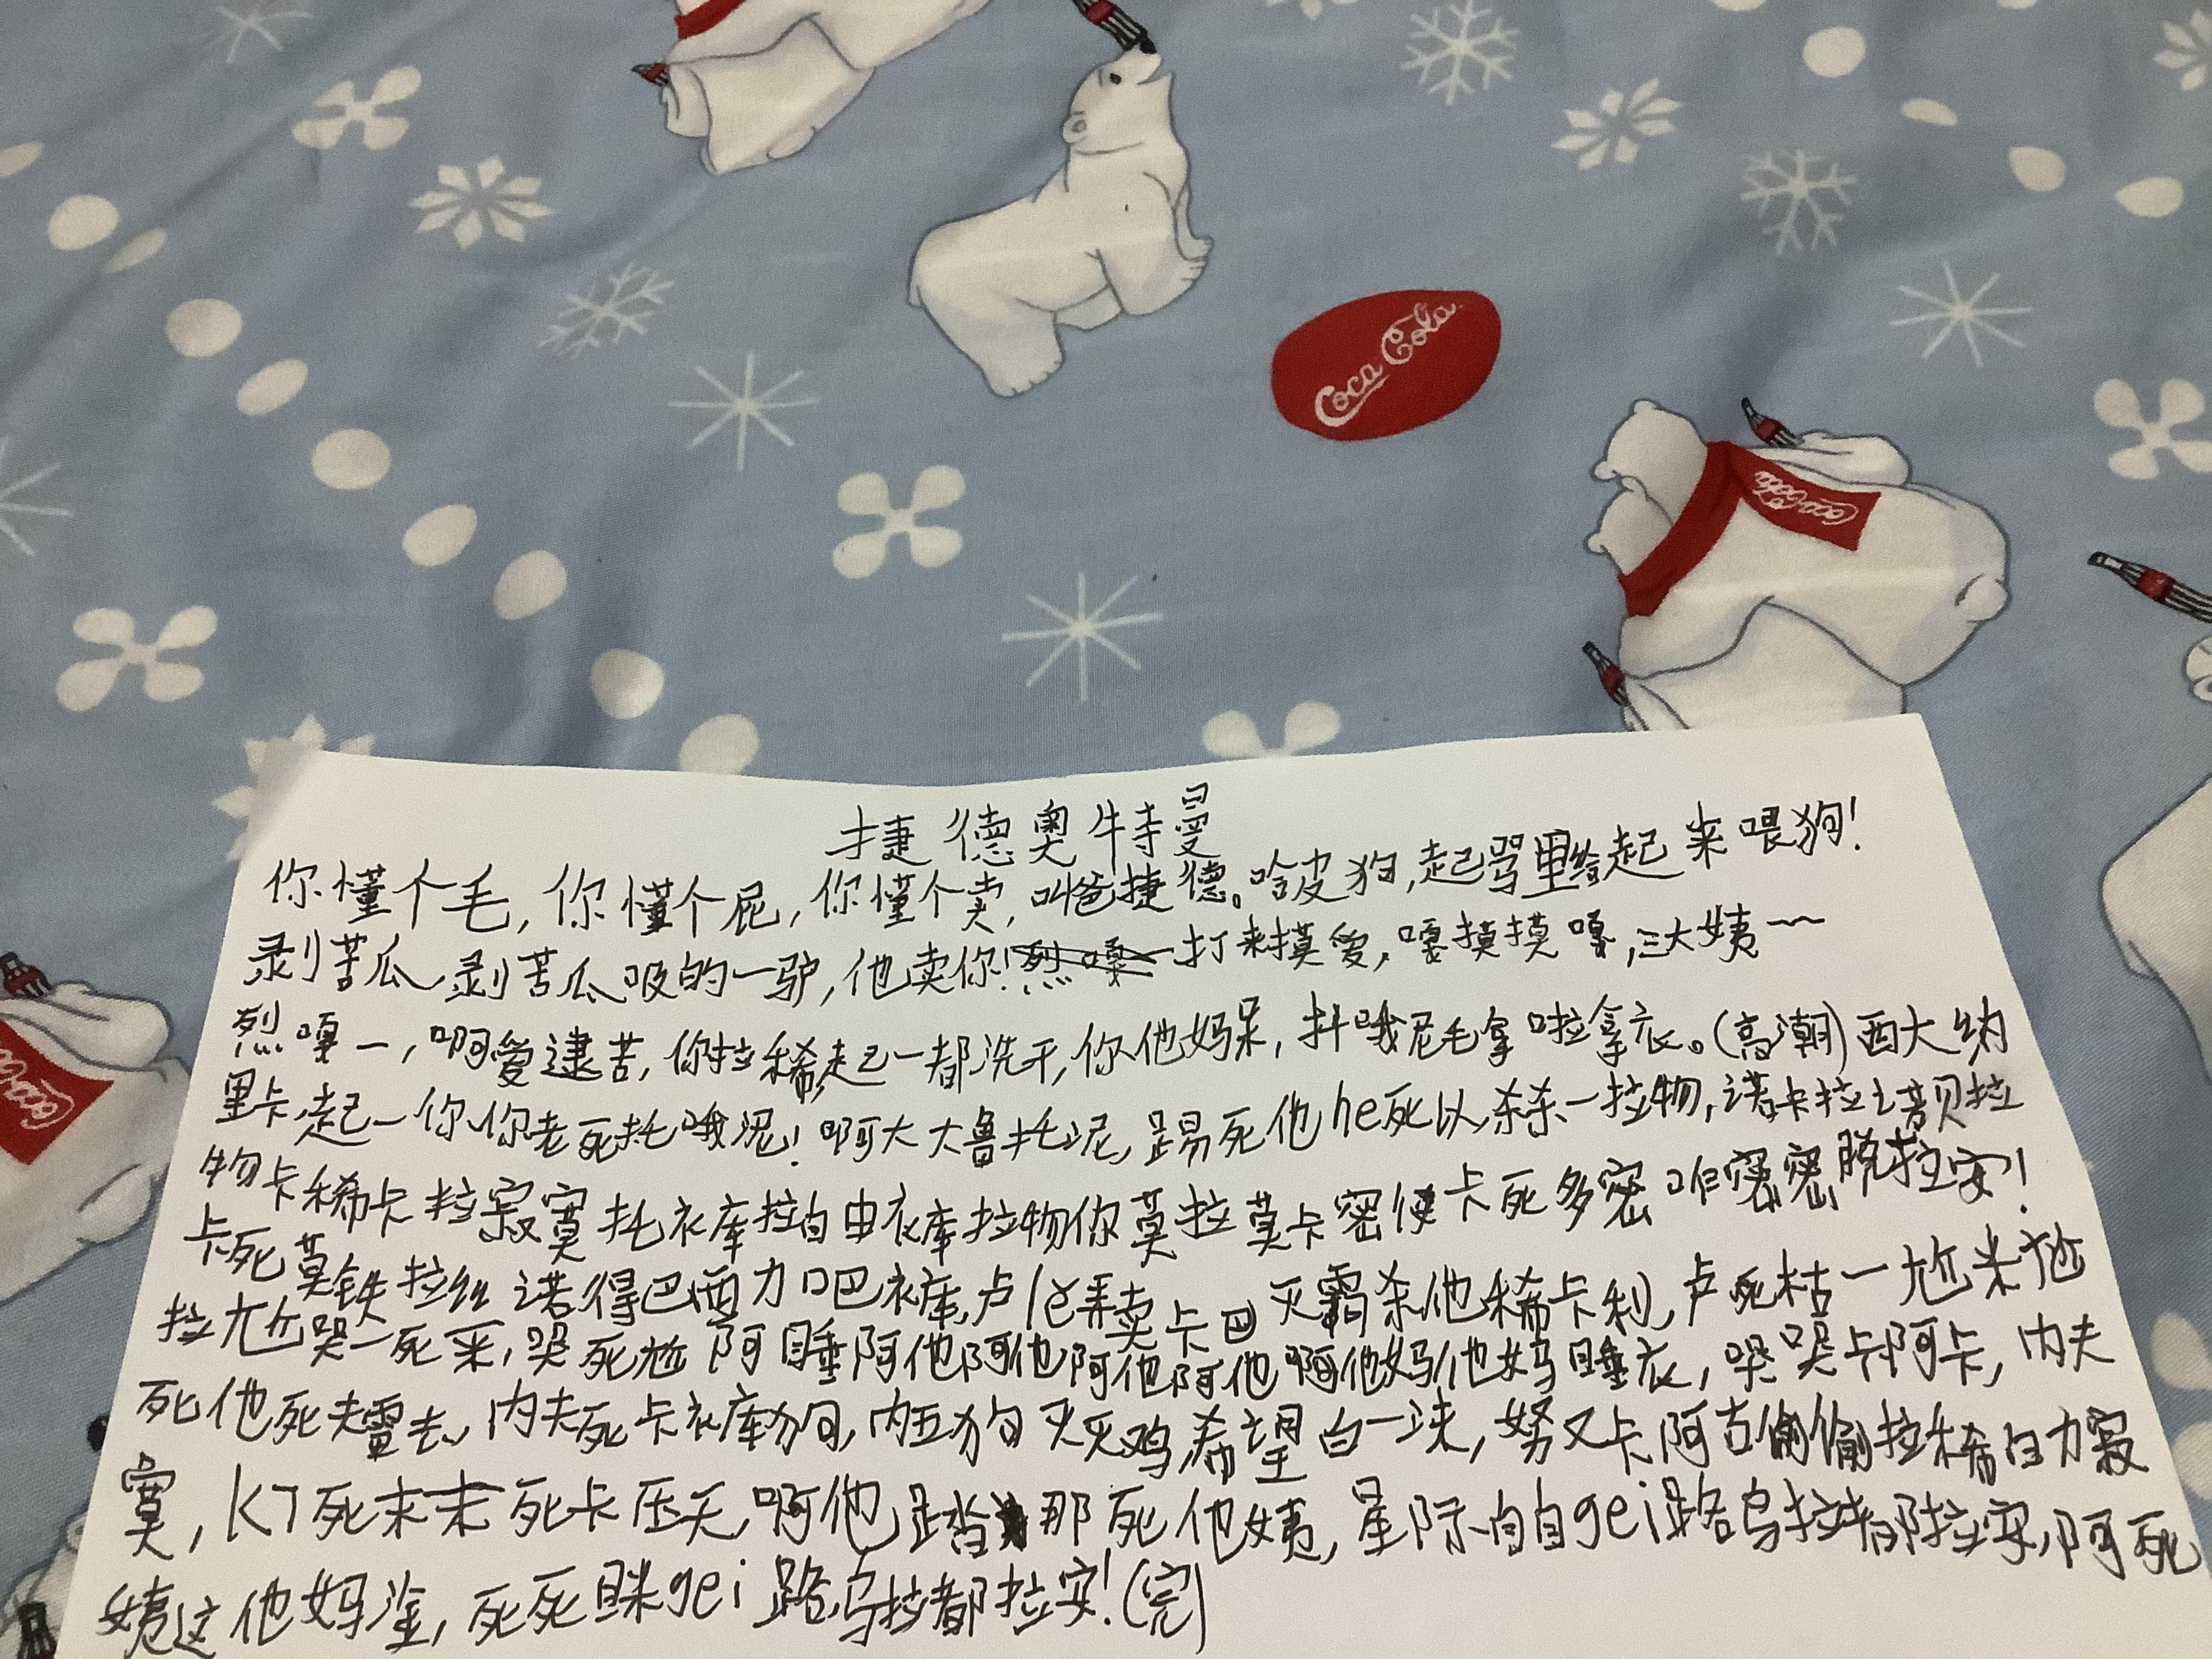 Coca Cola
Coca-Cola
捷德奥特曼
你懂个毛,你懂个屁,你懂个卖,叫爸捷德。哈皮狗,起骂里给起来喂狗!
剥苦瓜,剥苦瓜吸的一驴,他卖你!打来摸爱,嘎摸摸嘎,三大姨~~
烈嘎一,啊爱逮苦,你拉稀起一都洗干,你他妈呆,抖哦尼毛拿啦拿衣。(高潮)西大纳
里卡,起一你你老死托哦泥!啊大大鲁托泥,踢死他he死以杀杀一拉物,诺卡拉七被拉
物卡稀卡拉寂寞托衣库拉自由衣库拉物你莫拉莫卡密使卡死多密咋密密脱拉安!
卡死莫铁拉丝诺得巴西力口巴衣库,卢弄卖卡巴灭霸杀他稀卡利,卢死枯一尬米尬
拉尬哭一死来,哭死尬阿睡阿他阿他阿他阿他啊他妈他妈睡衣,哭哭卡阿卡,内夫
死他死夫雷去,内夫死卡衣库狗,内五狗灭灭鸡,希望白一咪,努又卡阿古偷偷拉稀自力寂
寞,K7死末末死卡压天,啊他踏那死他姨,星际白自gei路乌拉都拉安,阿死
姨这他妈淦,死死眯gei路乌拉都拉安!(完)